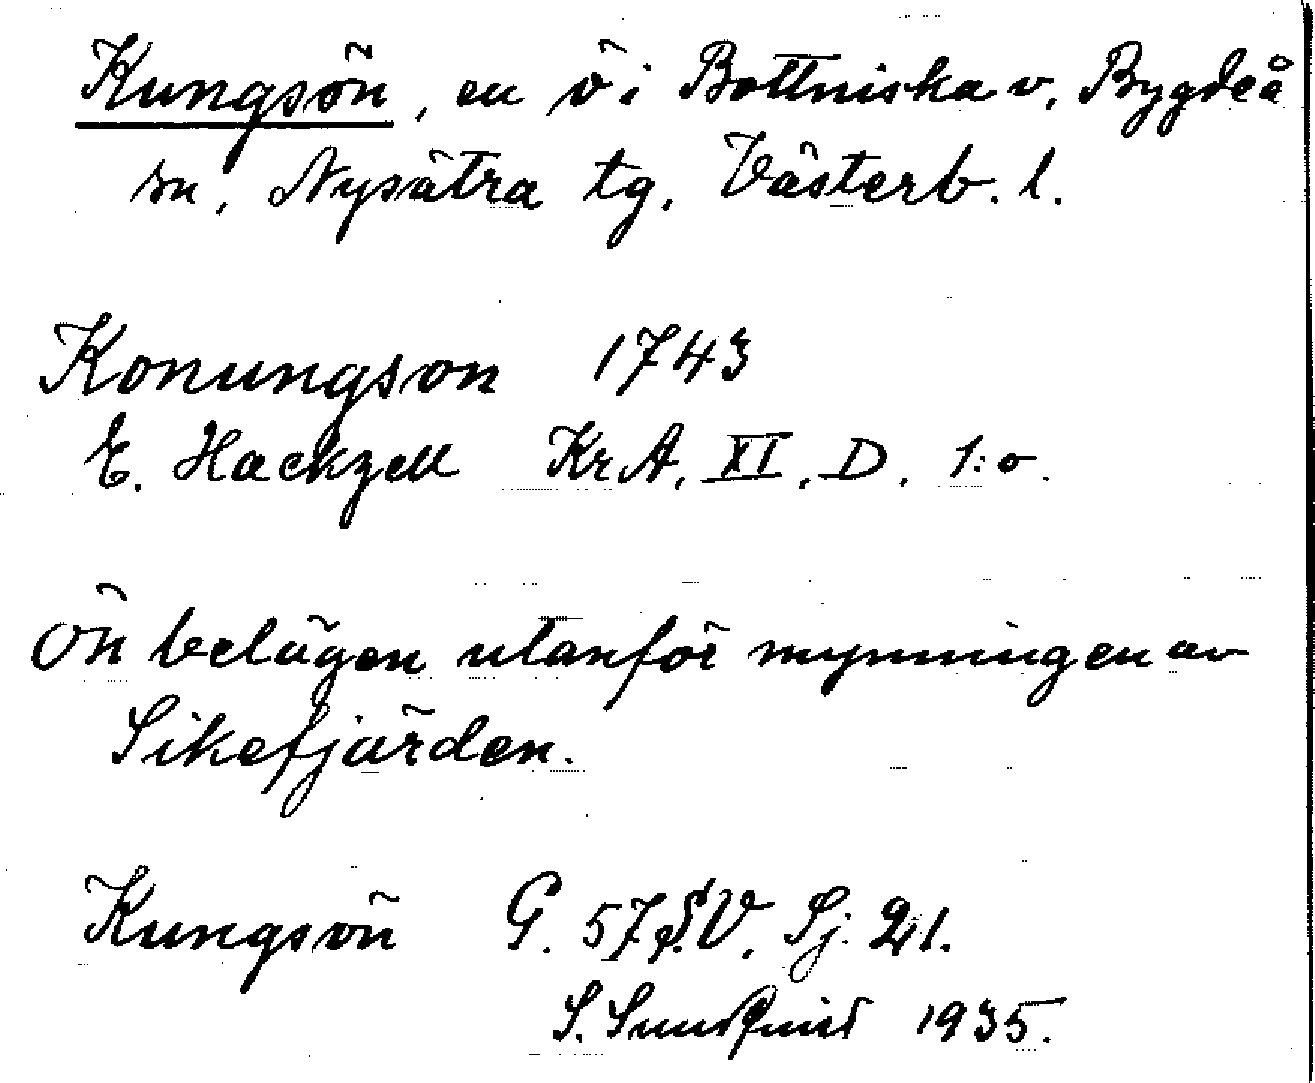 Kungsön, en ö i Bottniska v. Bygdeå
sn, Nysätra tg. Västerb. l.
Konungson 1743
E. Hackzell KrA. XI. D. 1:o.
Ön belägen utanför mynningen av
Sikefjärden.
Kungsön G. 57 S.V. Sj. 21.
S. Sundquist 1935.